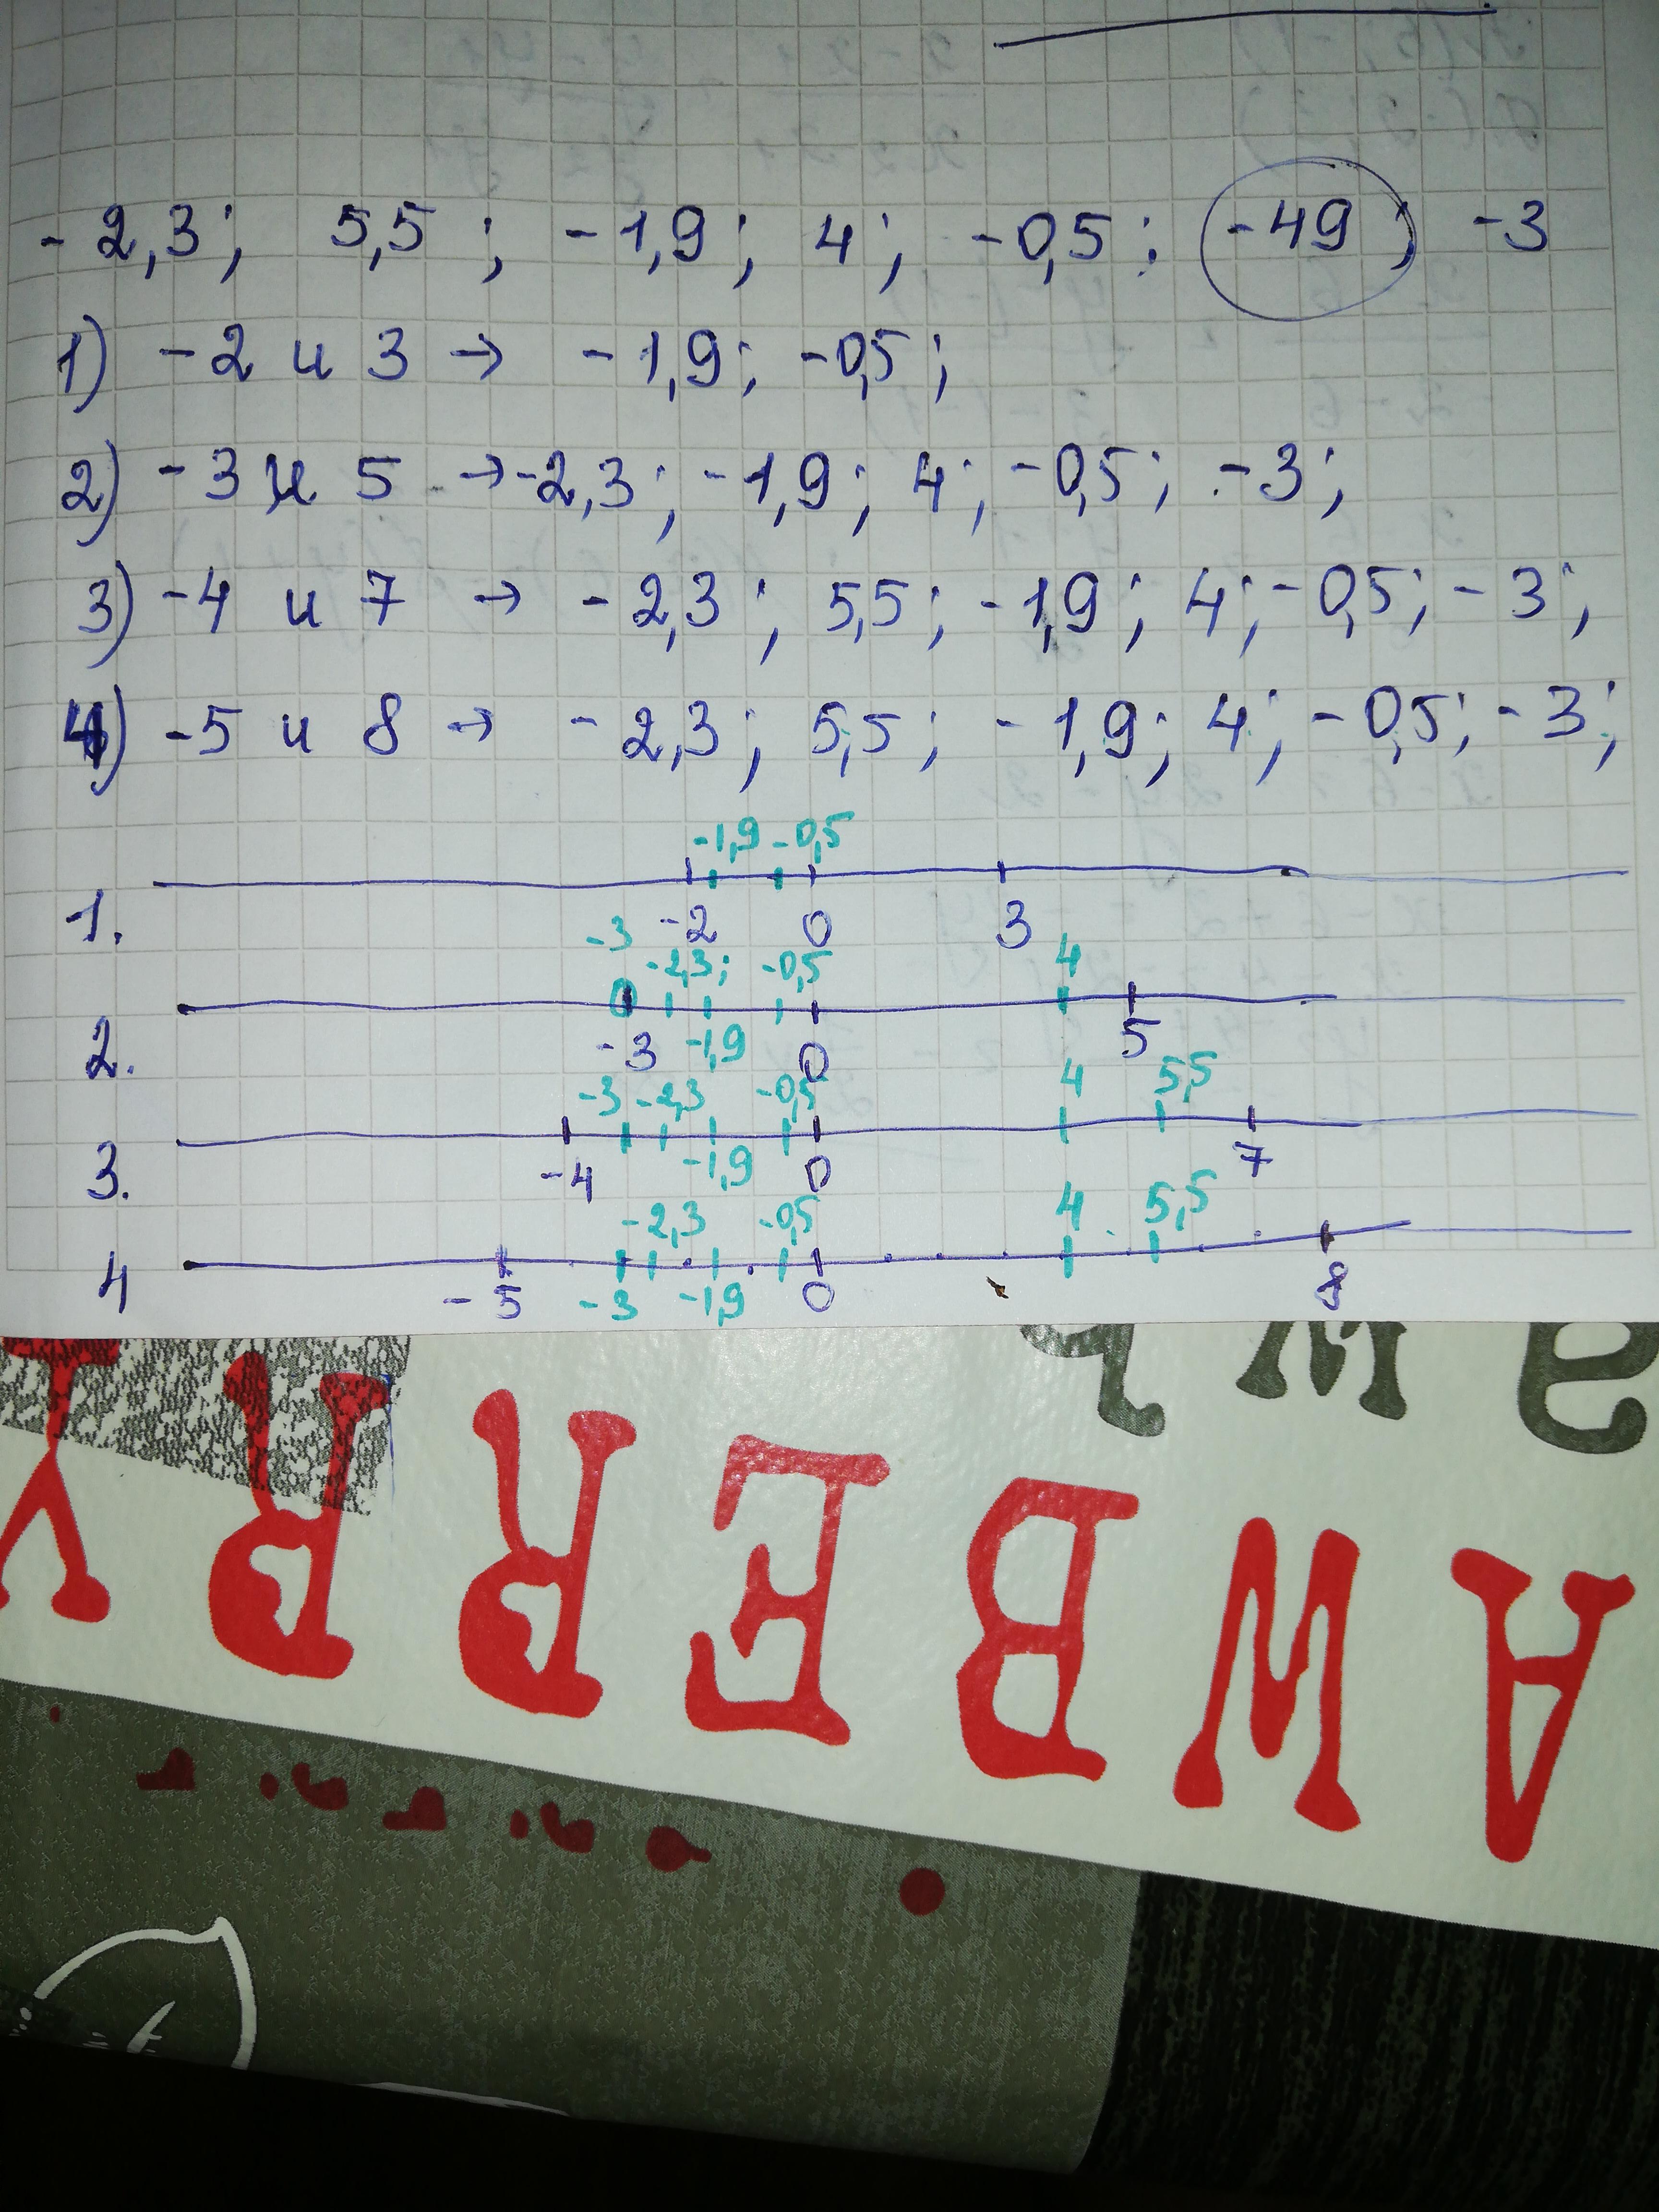 -2,3; 5,5; -1,9; 4; -0,5; -49; -3
1) -2 и 3 → -1,9; -0,5;
2) -3 и 5 → -2,3; -1,9; 4; -0,5; -3;
3) -4 и 7 → -2,3; 5,5; -1,9; 4; -0,5; -3;
4) -5 и 8 → -2,3; 5,5; -1,9; 4; -0,5; -3;
-1,9 -0,5
1. -2 0 3
-3 -2,3; -0,5 4
2. -3 -1,9 0 5
-3 -2,3 -0,5 4 5,5
3. -4 -1,9 0 7
-2,3 -0,5 4 5,5
4 -5 -3 -1,9 0 8